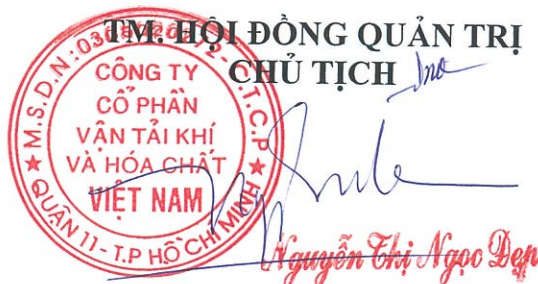 TM. HỘI ĐỒNG QUẢN TRỊ
CHỦ TỊCH
CÔNG TY
CỔ PHẦN
VẬN TẢI KHÍ
VÀ HÓA CHẤT
VIỆT NAM
QUẬN 11 - T.P HỒ CHÍ MINH
Nguyễn Thị Ngọc Đẹp